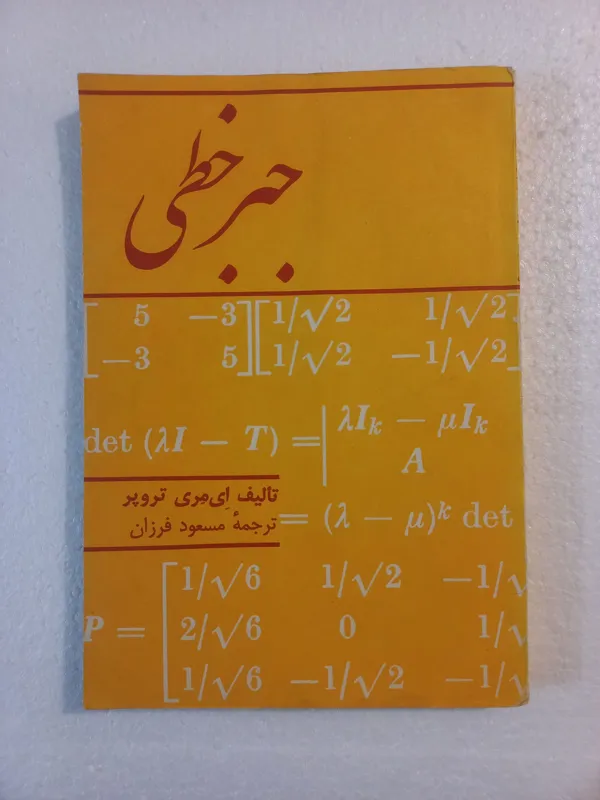 جبر خطی
[ 5 −3 ] [ 1/√2 1/√2 ]
[ −3 5 ] [ 1/√2 −1/√2 ]
det (λI − T) = | λIₖ − μIₖ
A
تالیف اِی‌مِری تروپر
ترجمهٔ مسعود فرزان
= (λ − μ)ᵏ det
P = [ 1/√6 1/√2 −1/√
2/√6 0 1/√
1/√6 −1/√2 −1/√